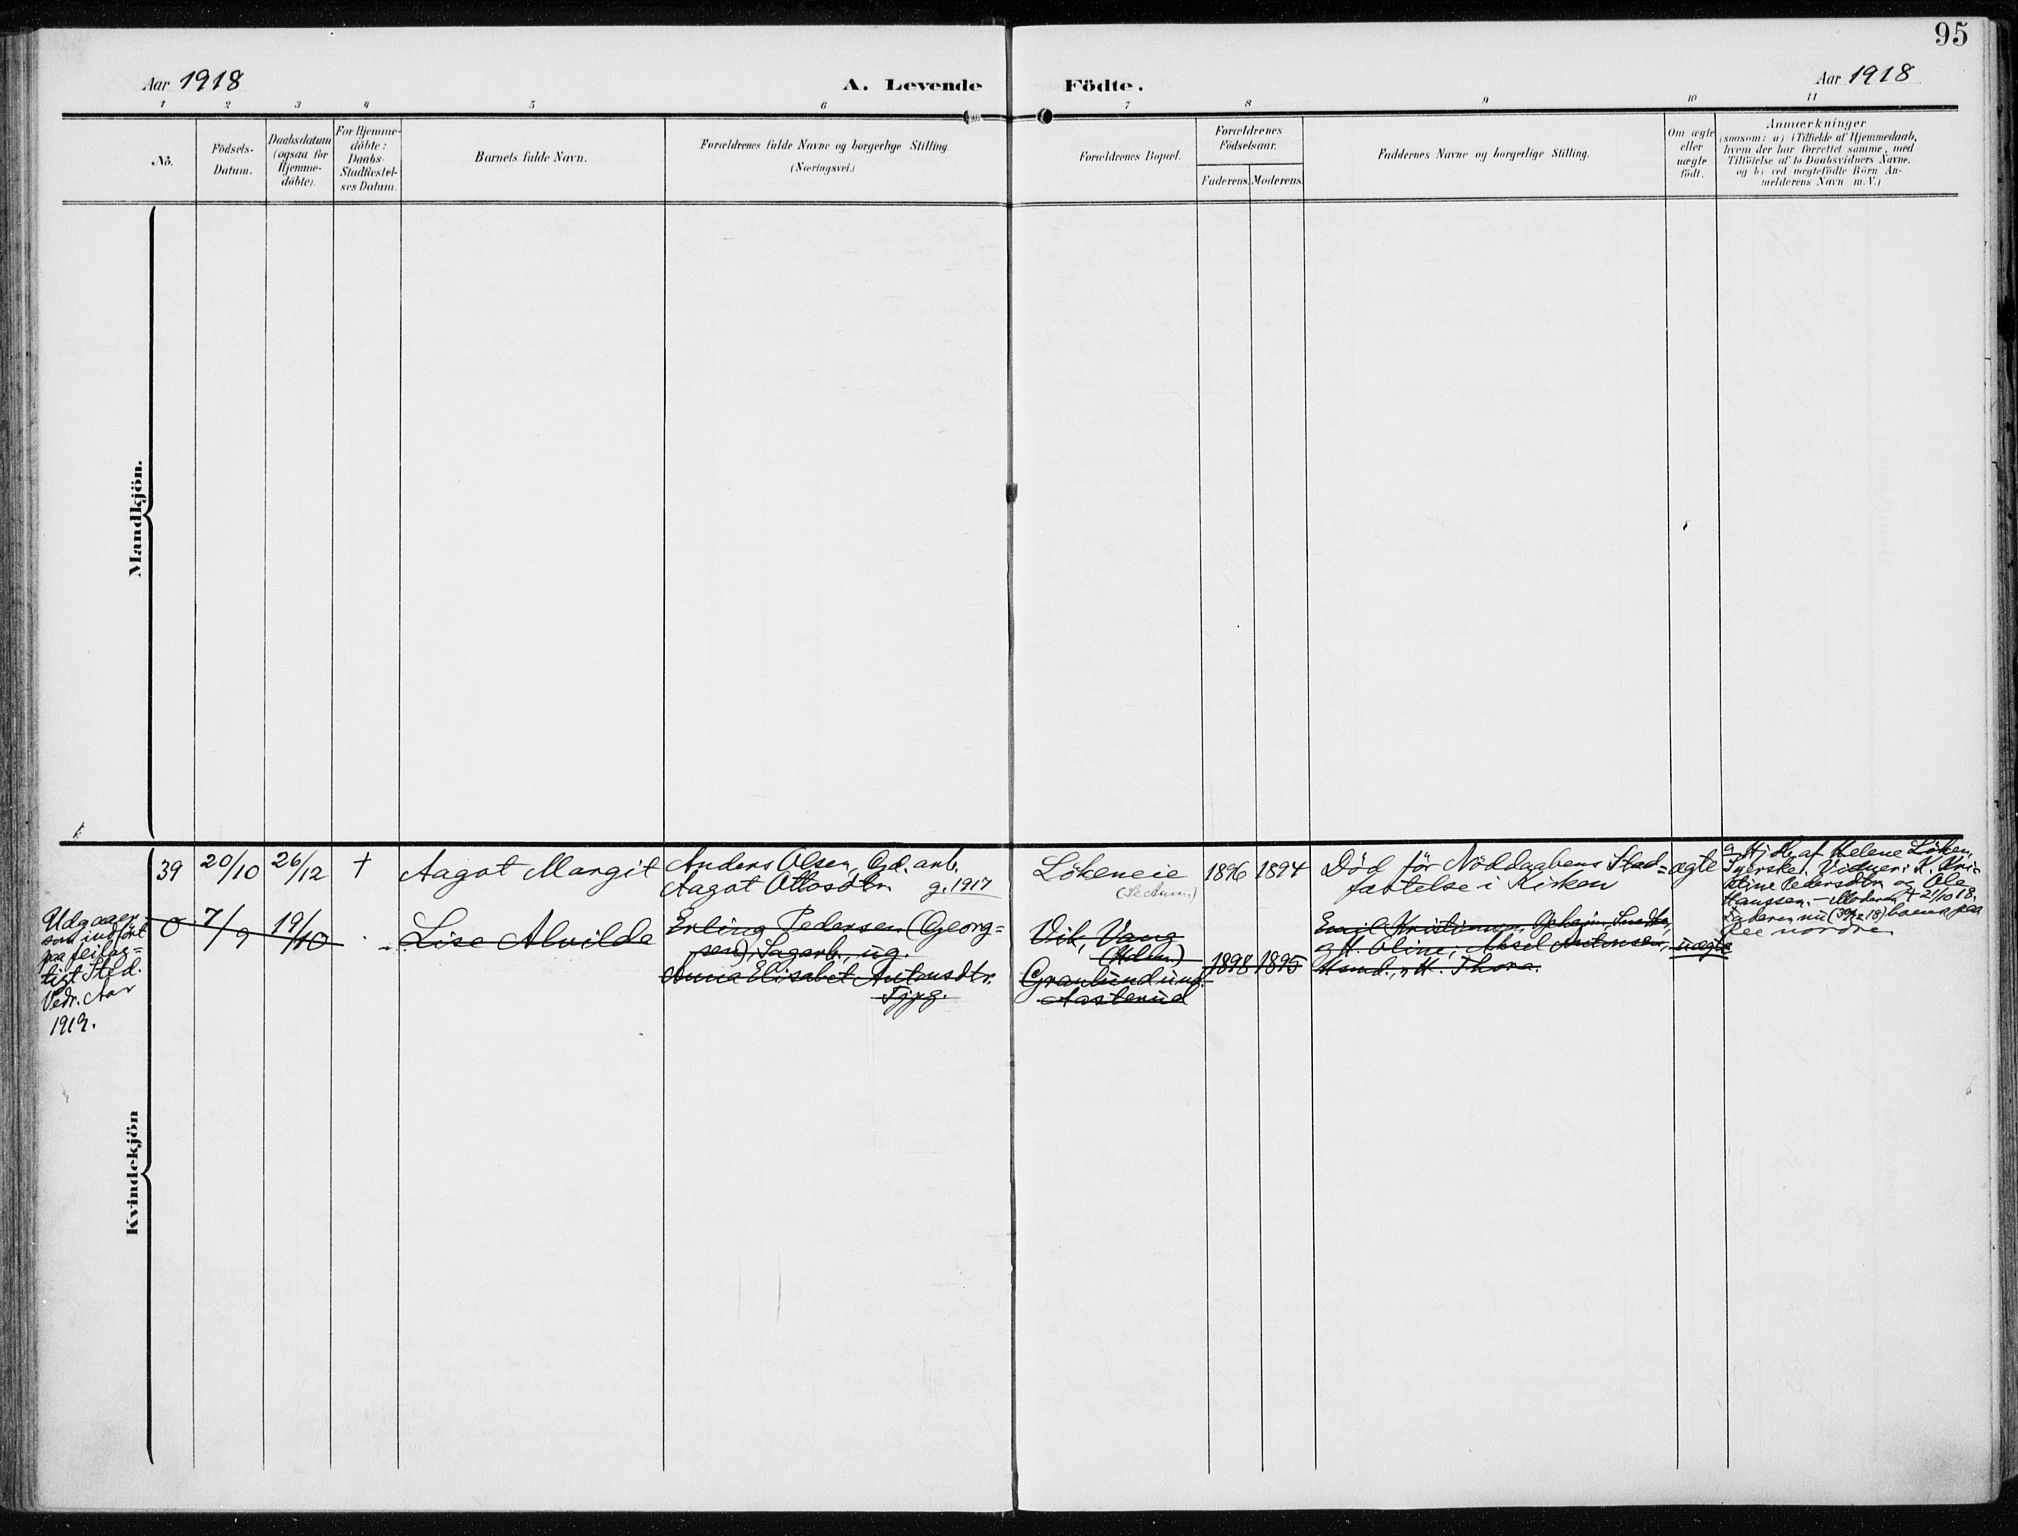 95
Aar 1918
A. Levende Födte.
Aar 1918
1 2 3 4 5 6 7 8 9 10 11
No.
Födsels-
Datum.
Daabsdatum
(ogsaa for
Hjemme-
döbte).
For Hjemme-
döbte:
Daabs-
Stadfæstel-
ses Datum.
Barnets fulde Navn.
Forældrenes fulde Navne og borgerlige Stilling.
(Næringsvei.)
Forældrenes Bopæl.
Forældrenes
Födselsaar.
Faderens. Moderens.
Faddernes Navne og borgerlige Stilling.
Om ægte
eller
uægte
födt.
Anmærkninger
(saasom: a) i Tilfælde af Hjemmedaab,
hvem der har forrettet samme, med
Tilföielse af to Daabsvidners Navne.
og b) ved uægtefödte Börn An-
melderens Navn m. V.)
Mandkjön.
39 20/10 26/12 + Aagot Margit
Anders Olsen, Gd. arb.
Aagot Ottosdtr. g. 1917
Lökeneie
1896 1894
Död för Nöddaabens Stad=
fæstelse i Kirken
ægte
a Hj. db. af Helene Löken,
Syerske. Vidner: K. Kri-
stine Pedersdtr. og Ole
Hanssen. - Moderen + 21/10 18.
Faderen nu (30/12 18) boende paa
nordre
Udgaaer
som indfört
paa feilag=
tigt Sted.
Vedr. Aar
1919.
0 7/9 19/10 Lise Alvilde
Erling Pedersen (Georg=
sen), Sagarb., ug.
Anna Elisabet Antonsdtr.
Tj.pg.
Vik, Vang
(Hdlm.)
Granlund und.
Aasterud
1898 1895
Emil Kristiansen,
g H. Oline; Aksel Antonsen,
Hsmd., H. Thora.
uægte
Kvindekjön